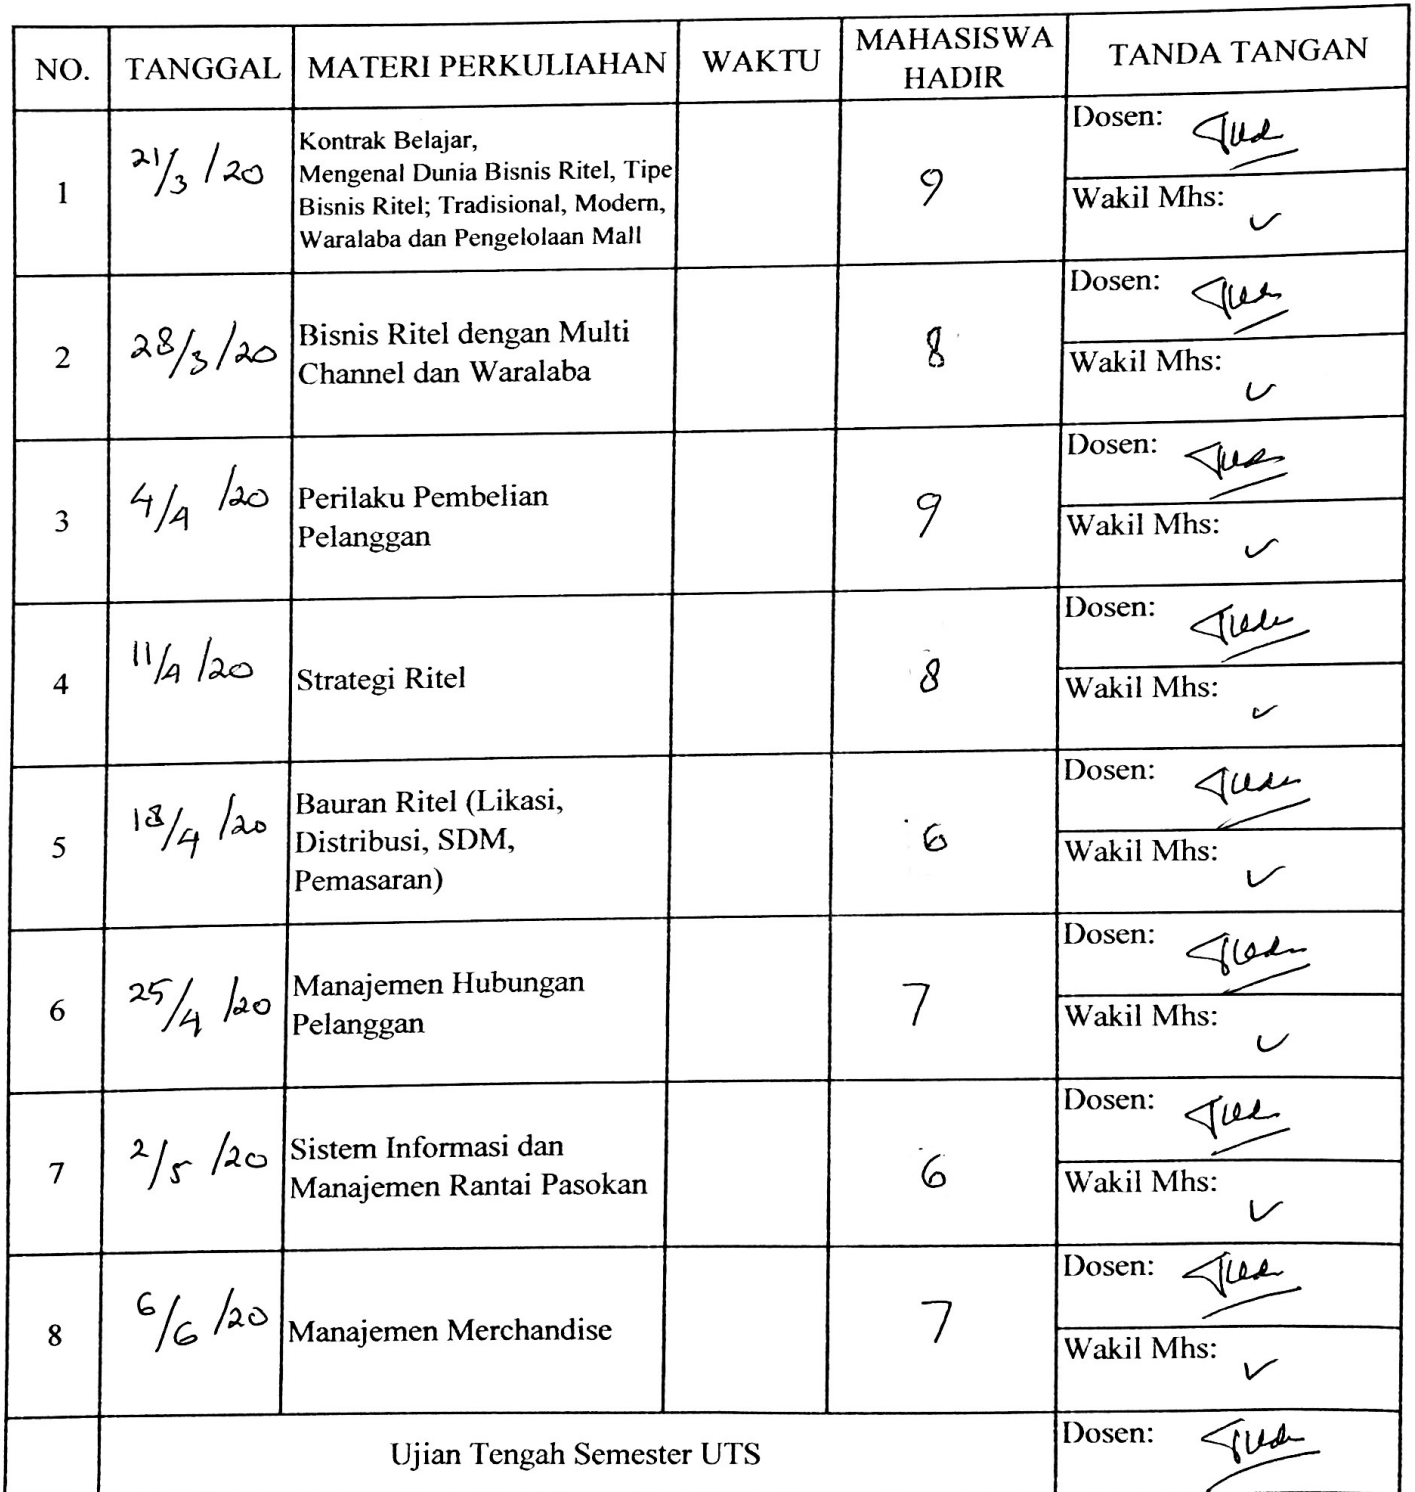 NO. TANGGAL MATERI PERKULIAHAN WAKTU MAHASISWA HADIR TANDA TANGAN
1 21/3/20 Kontrak Belajar,
Mengenal Dunia Bisnis Ritel, Tipe
Bisnis Ritel; Tradisional, Modern,
Waralaba dan Pengelolaan Mall
9
Dosen:
Wakil Mhs: ✓
2 28/3/20 Bisnis Ritel dengan Multi
Channel dan Waralaba
8
Dosen:
Wakil Mhs: ✓
3 4/4/20 Perilaku Pembelian
Pelanggan
9
Dosen:
Wakil Mhs: ✓
4 11/4/20 Strategi Ritel
8
Dosen:
Wakil Mhs: ✓
5 18/4/20 Bauran Ritel (Likasi,
Distribusi, SDM,
Pemasaran)
6
Dosen:
Wakil Mhs: ✓
6 25/4/20 Manajemen Hubungan
Pelanggan
7
Dosen:
Wakil Mhs: ✓
7 2/5/20 Sistem Informasi dan
Manajemen Rantai Pasokan
6
Dosen:
Wakil Mhs: ✓
8 6/6/20 Manajemen Merchandise
7
Dosen:
Wakil Mhs: ✓
Ujian Tengah Semester UTS
Dosen: